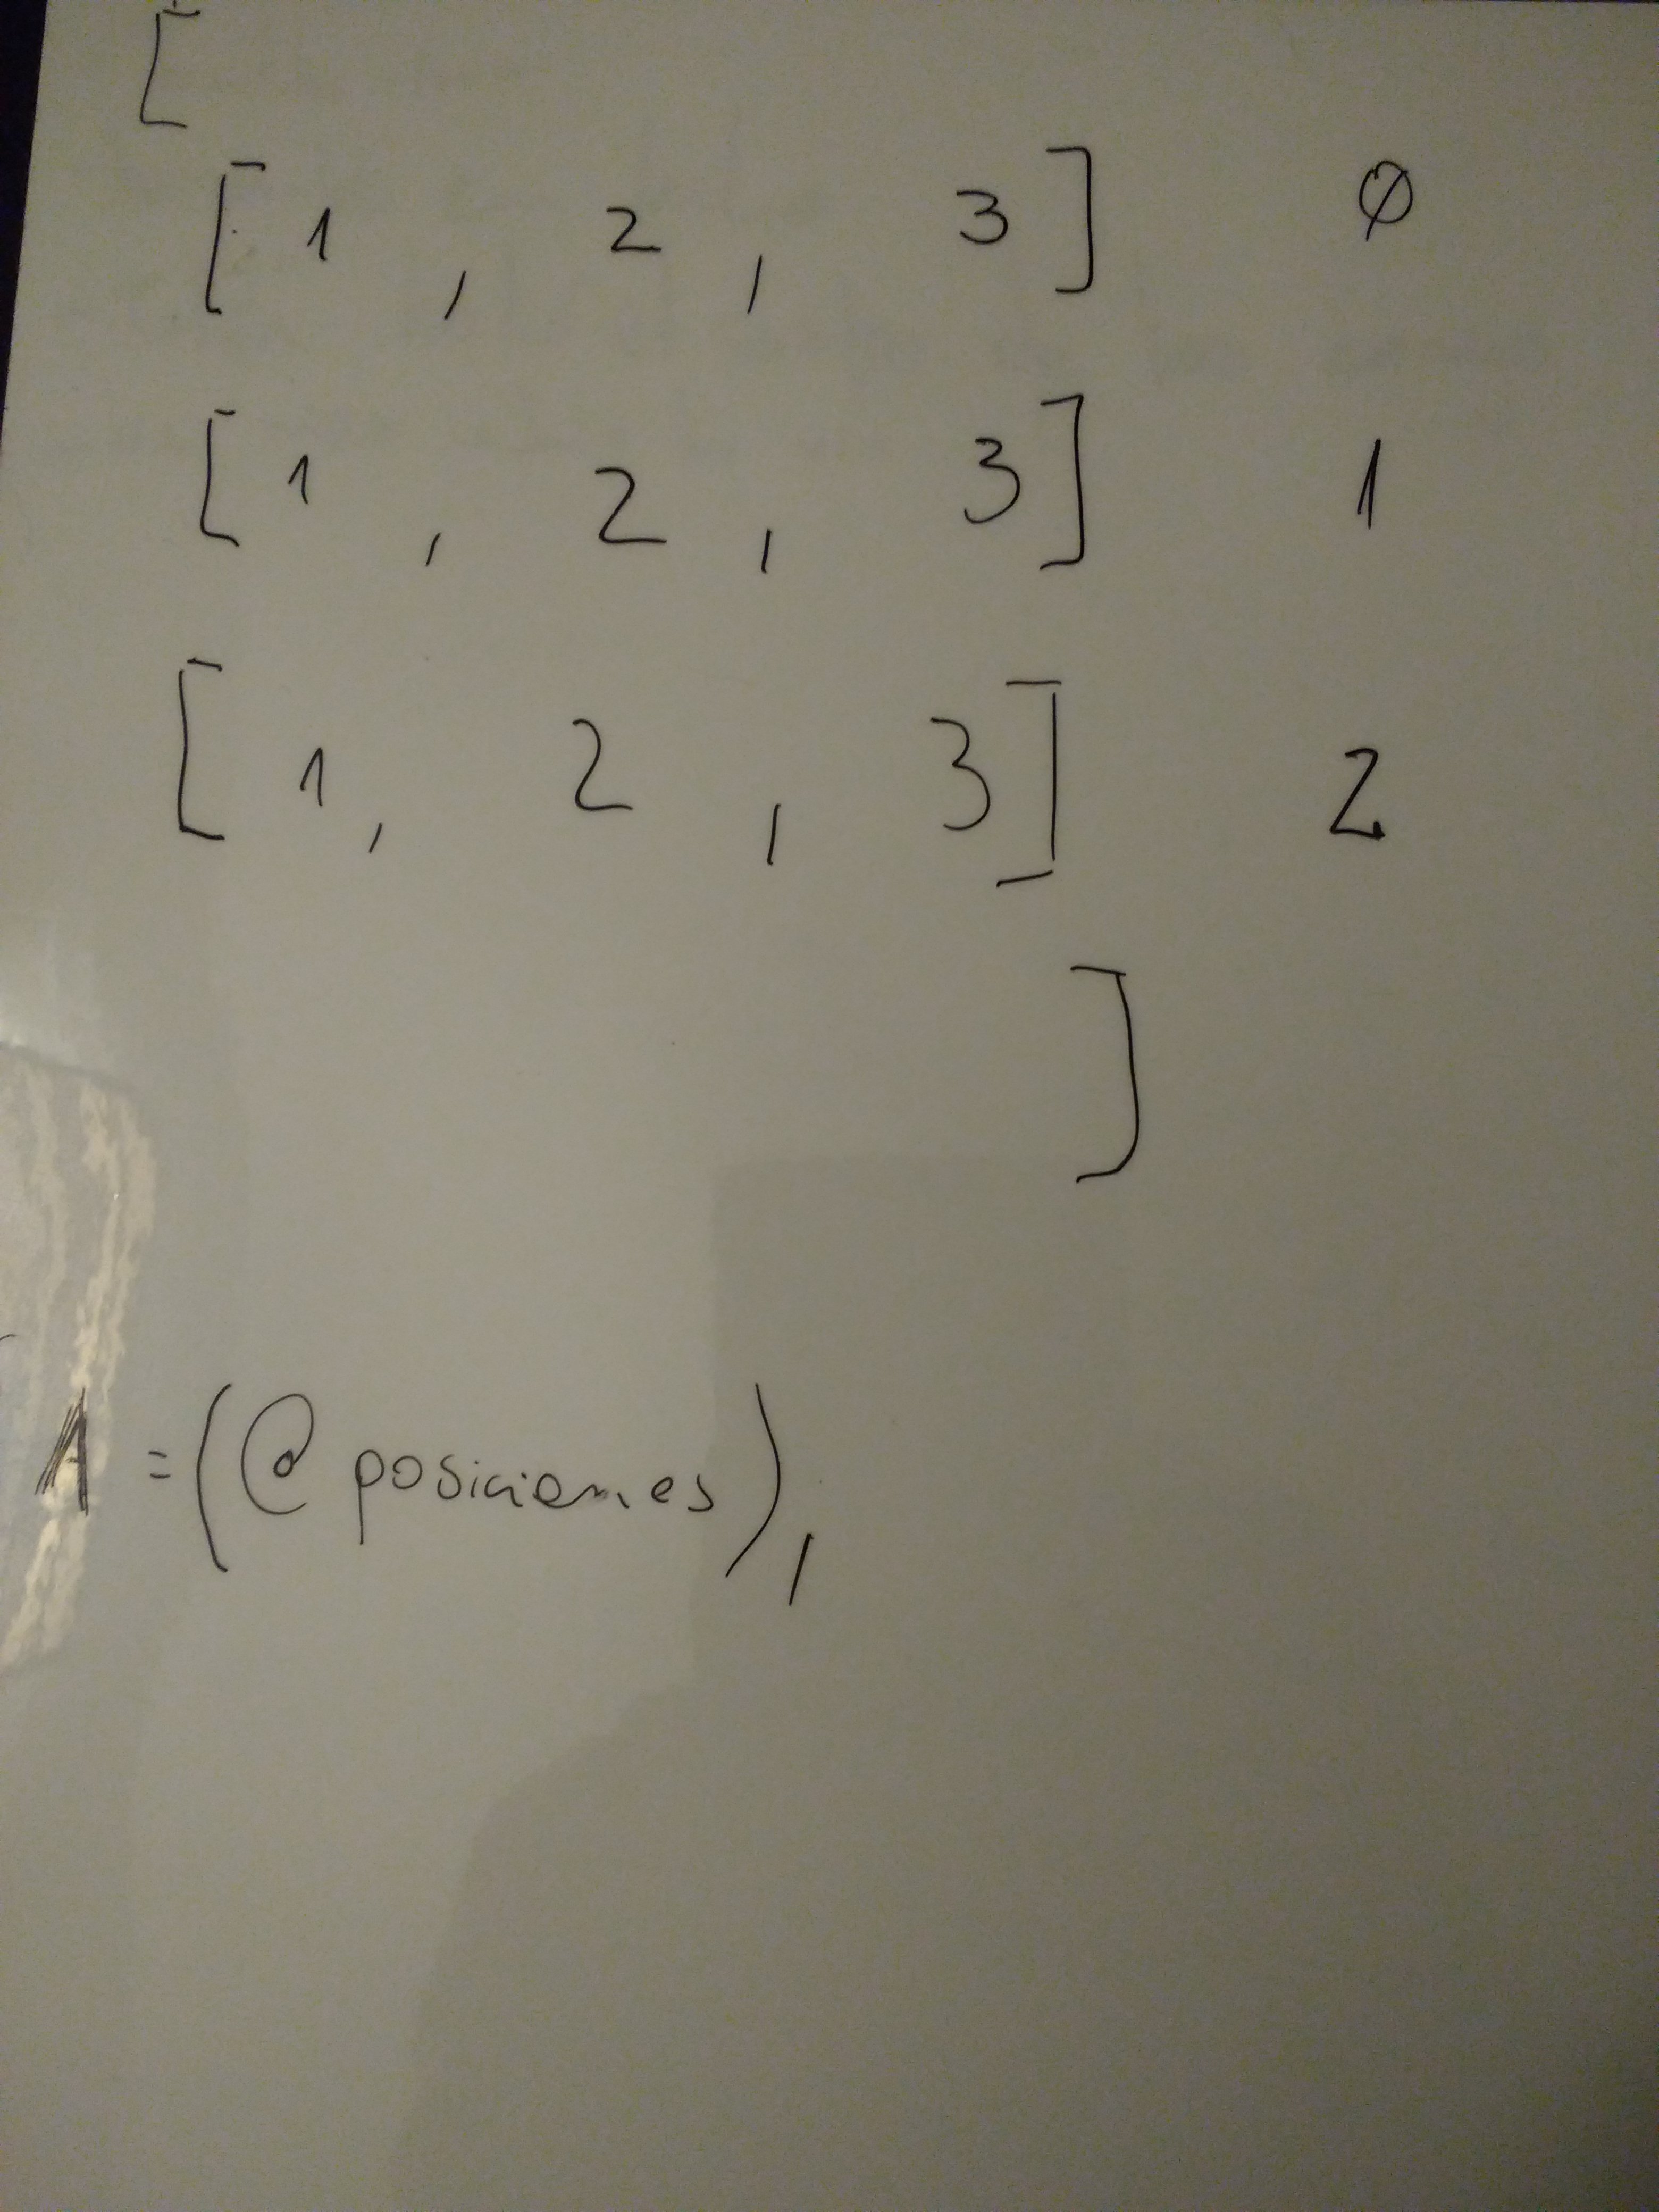 [
[1, 2, 3] 0
[1, 2, 3] 1
[1, 2, 3] 2
]
A = (@posiciones),